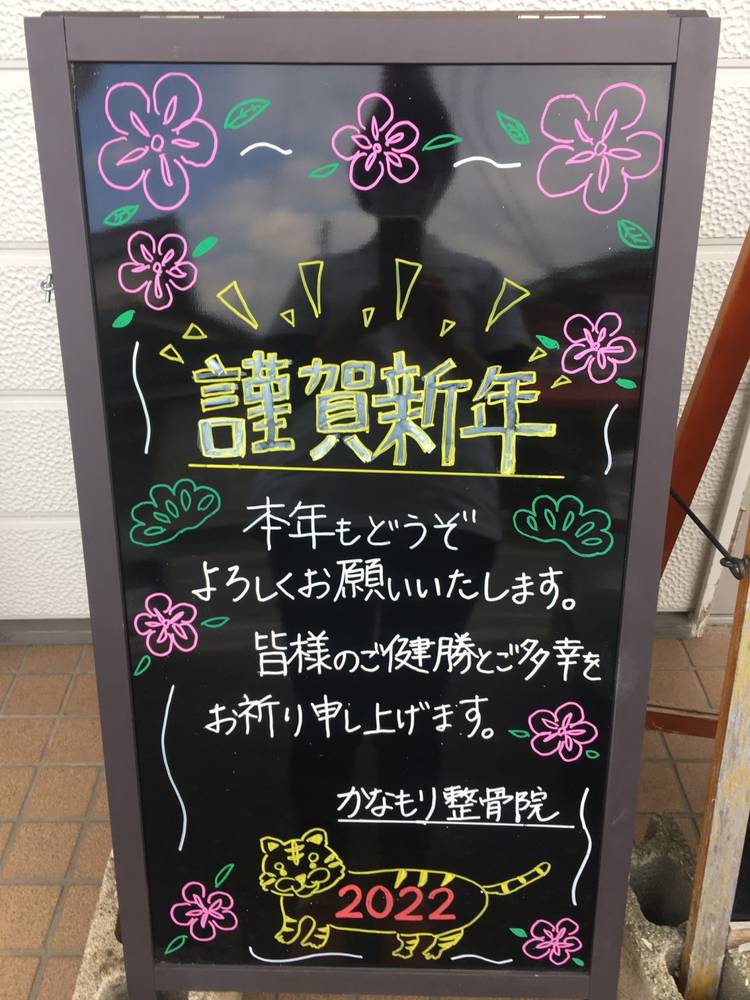 謹賀新年
本年もどうぞ
よろしくお願いいたします。
皆様のご健勝とご多幸を
お祈り申し上げます。
かなもり整骨院
2022